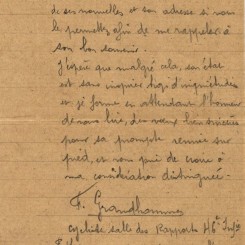 de ses nouvelles et son adresse si vous
le permettez afin de me rappeler à
son bon souvenir.
J'espère que malgré cela, son état
est sans inspirer trop d'inquiétudes
et je forme en attendant l'honneur
de vous lire, des vœux bien sincères
pour sa prompte remise sur
pied, et vous prie de croire à
ma considération distinguée.
F. Grandhomme
Cycliste salle des Rapports 46e Inf